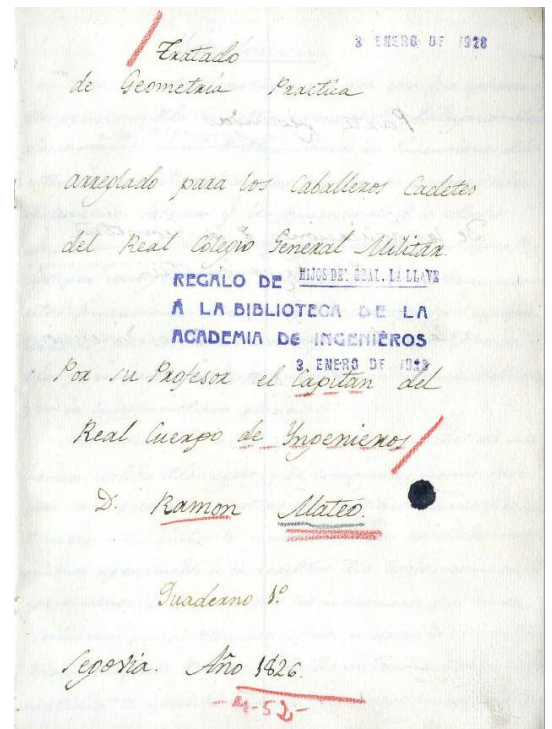 3 ENERO DE 1928
Tratado
de Geometria Practica
arreglado para los Caballeros Cadetes
del Real Colegio General Militar.
REGALO DE HIJOS DEL GRAL. LA LLAVE
Á LA BIBLIOTECA DE LA
ACADEMIA DE INGENIEROS
3, ENERO DE 1928
Por su Profesor el Capitan del
Real Cuerpo de Yngenieros
D. Ramon Mateo.
Quaderno 1º
Segovia. Año 1826.
-M-52-